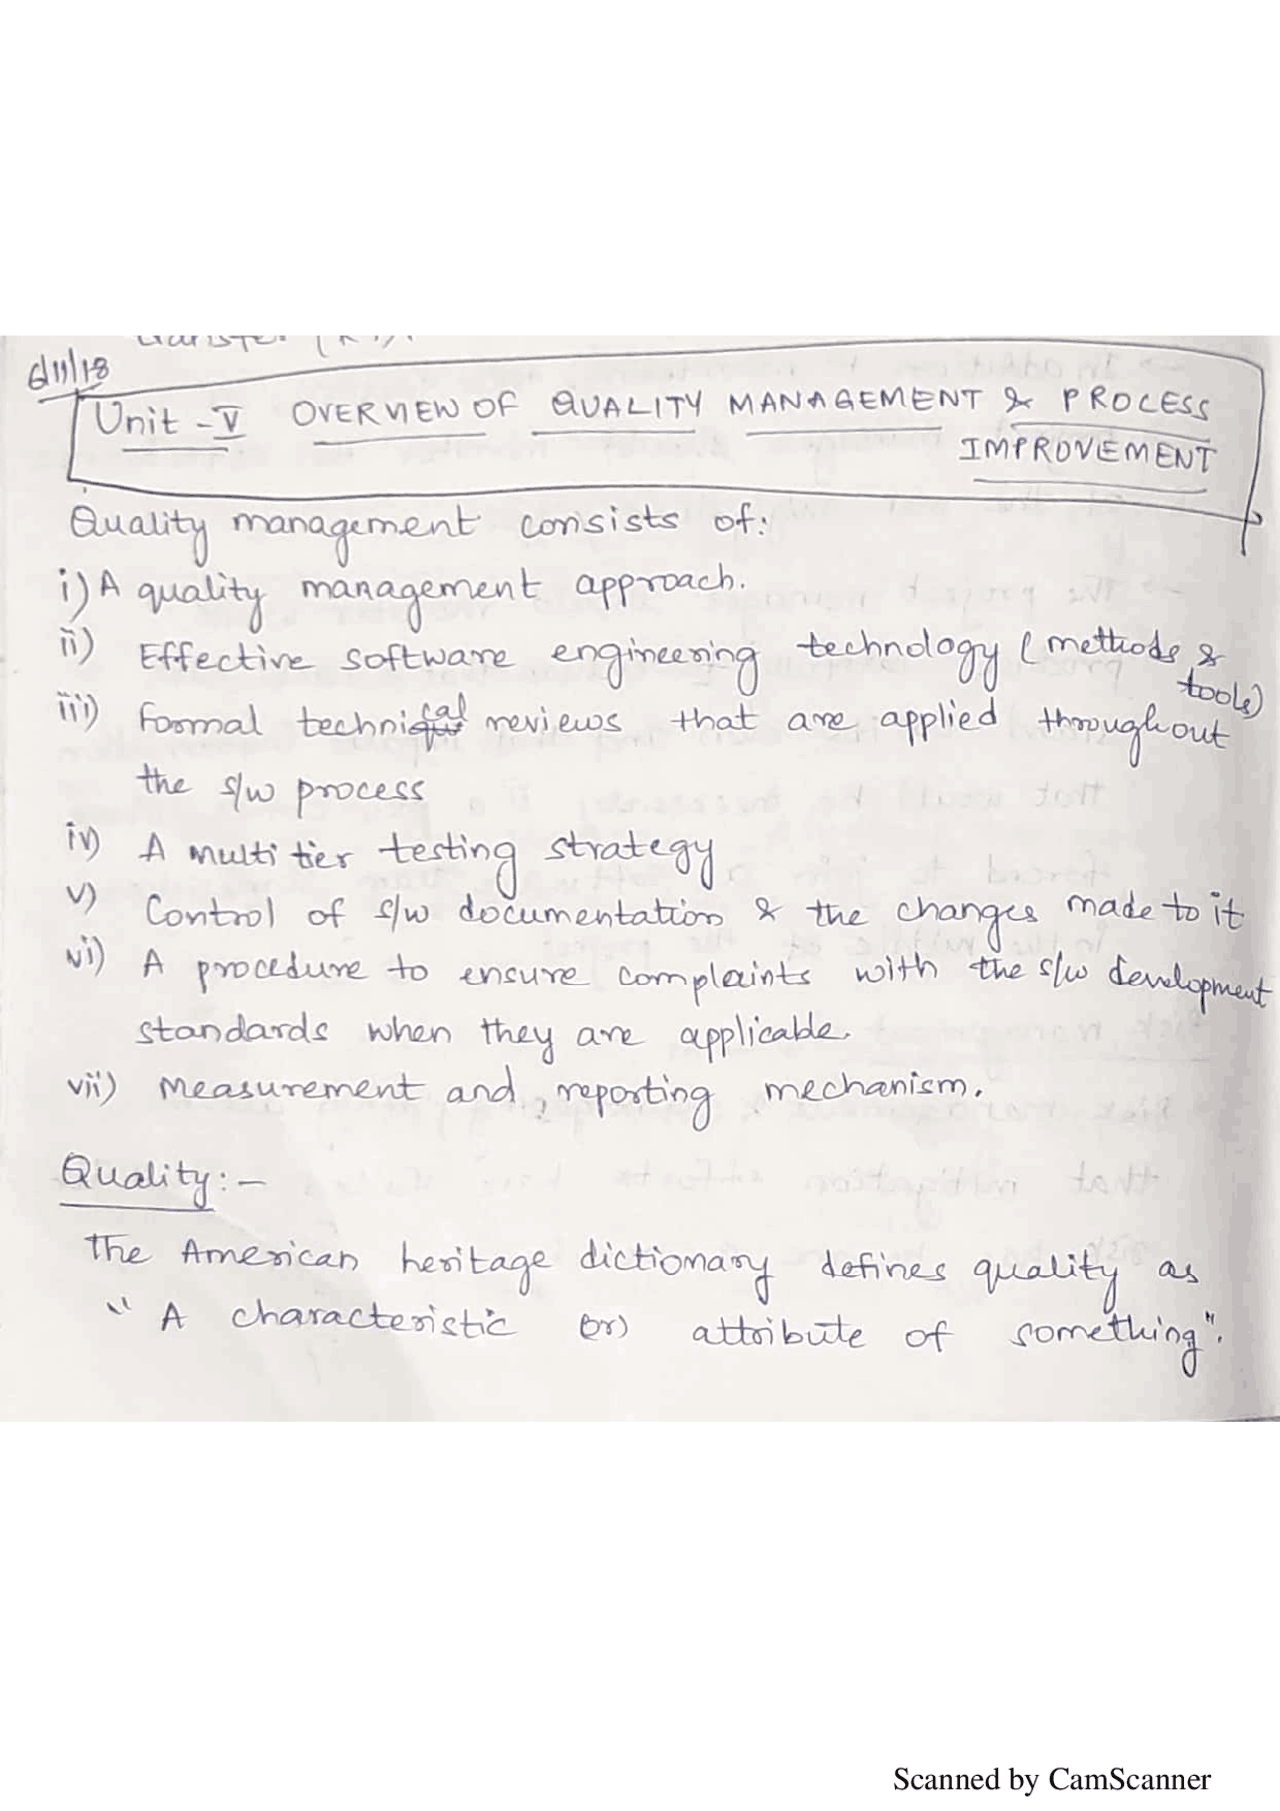 6/11/18
Unit - V OVERVIEW OF QUALITY MANAGEMENT & PROCESS
IMPROVEMENT
Quality management consists of:
i) A quality management approach.
ii) Effective software engineering technology (methods &
tools)
iii) Formal technical reviews that are applied throughout
the s/w process
iv) A multi tier testing strategy
v) Control of s/w documentation & the changes made to it
vi) A procedure to ensure complaints with the s/w development
standards when they are applicable.
vii) Measurement and reporting mechanism.
Quality:-
The American heritage dictionary defines quality as
"A characteristic (or) attribute of something".
Scanned by CamScanner